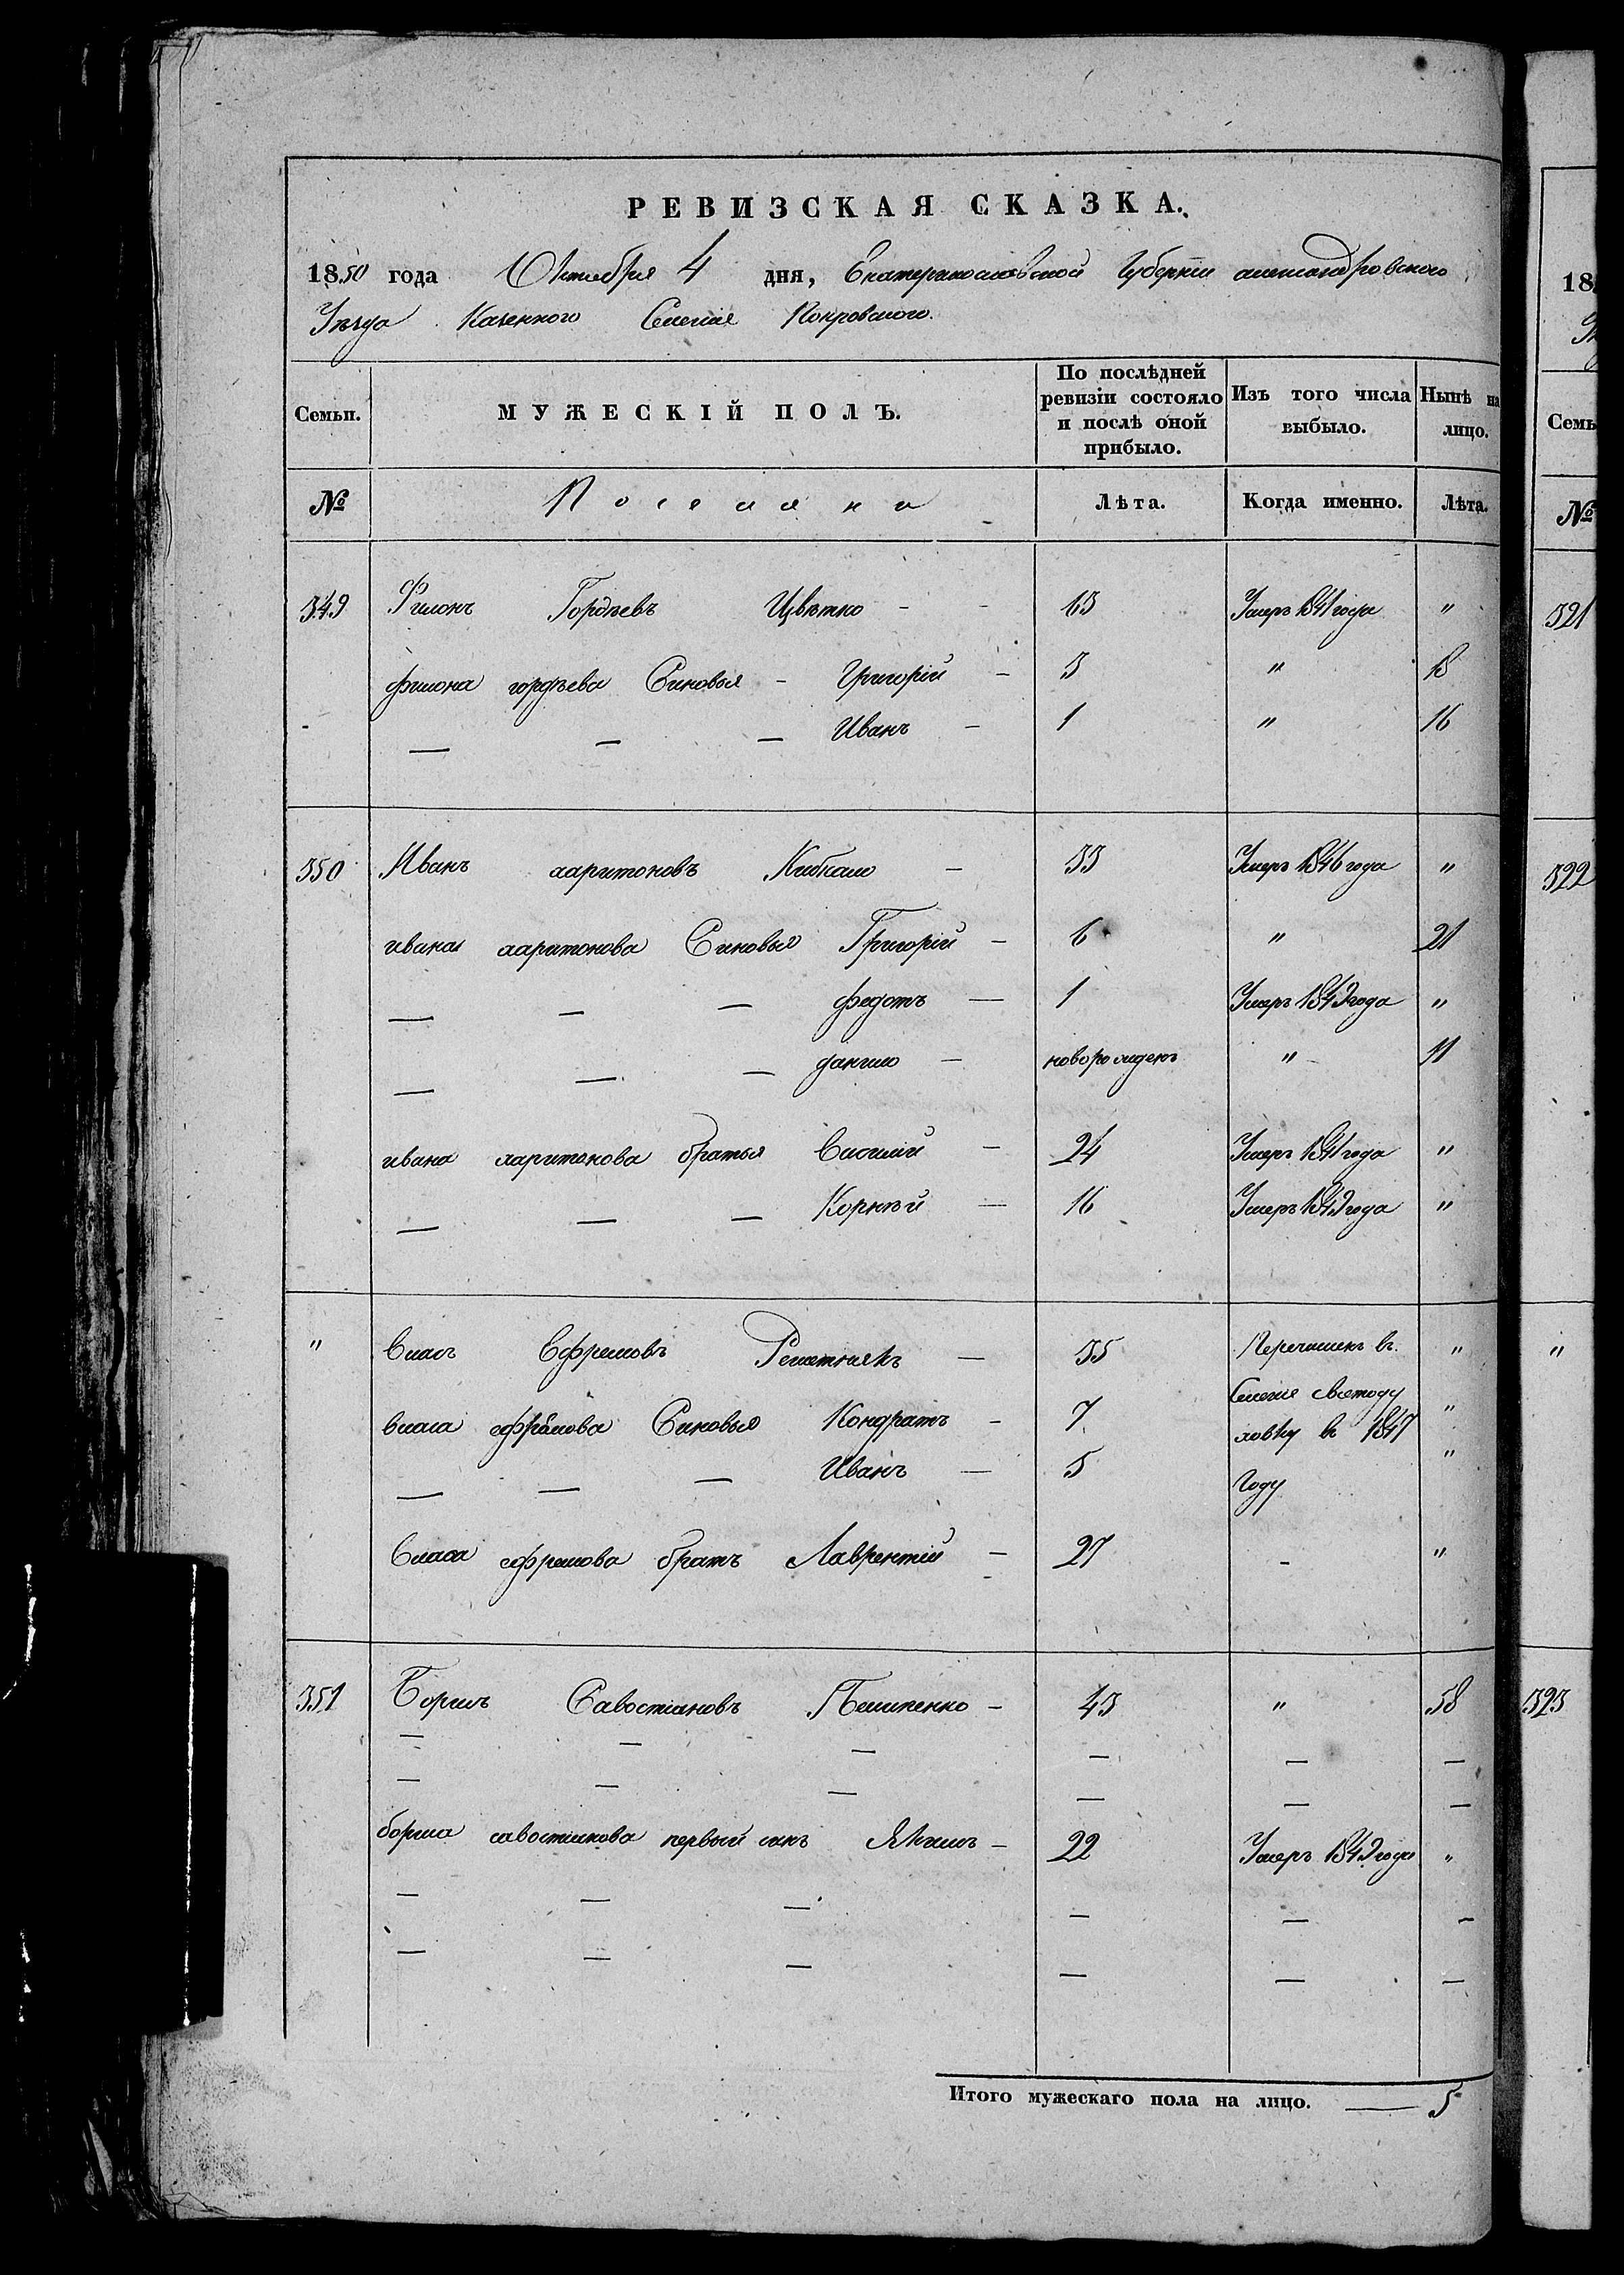 РЕВИЗСКАЯ СКАЗКА.
1850 года Октября 4 дня, Екатеринославской Губерніи александровского
Уезда Казенного Селенія Покровского.
Семьи. МУЖЕСКІЙ ПОЛЪ. По послѣдней ревизіи состояло и послѣ оной прибыло. Изъ того числа выбыло. Нынѣ на лицо.
№ Поселяни Лѣта. Когда именно. Лѣта.
349 Филонъ Гордѣевъ Цвѣтко - - 63 Умеръ 1841 года "
филона гордѣева Синовья - Григорій - 3 " 18
- — — — Иванъ - 1 " 16
350 Иванъ харитоновъ — 33 Умеръ 1846 года "
ивана харитонова Синовья Григорій — 6 " 21
— — — федотъ — 1 Умеръ 1849 года "
— — — данило — новорожденъ " 11
ивана харитонова братья Василій — 24 Умеръ 1841 года "
— — — Корнѣй — 16 Умеръ 1849 года "
" Власъ Ефремовъ Решетнякъ — 35 Перечисленъ въ "
власа ефремова Синовья Кондратъ - 7 Селеніе "
ховку въ 1847
— — — Иванъ — 5 "
Году
Власа ефремова братъ Лаврентій — 27 - "
351 Борисъ Савостіановъ - 43 " 58
— — — — — —
— — — — — —
бориса савостіянова первый синъ Якимъ - 22 Умеръ 1849 года "
— — — — — —
— — — — — —
Итого мужескаго пола на лицо. — 5
18
Семь
№
321
322
"
323